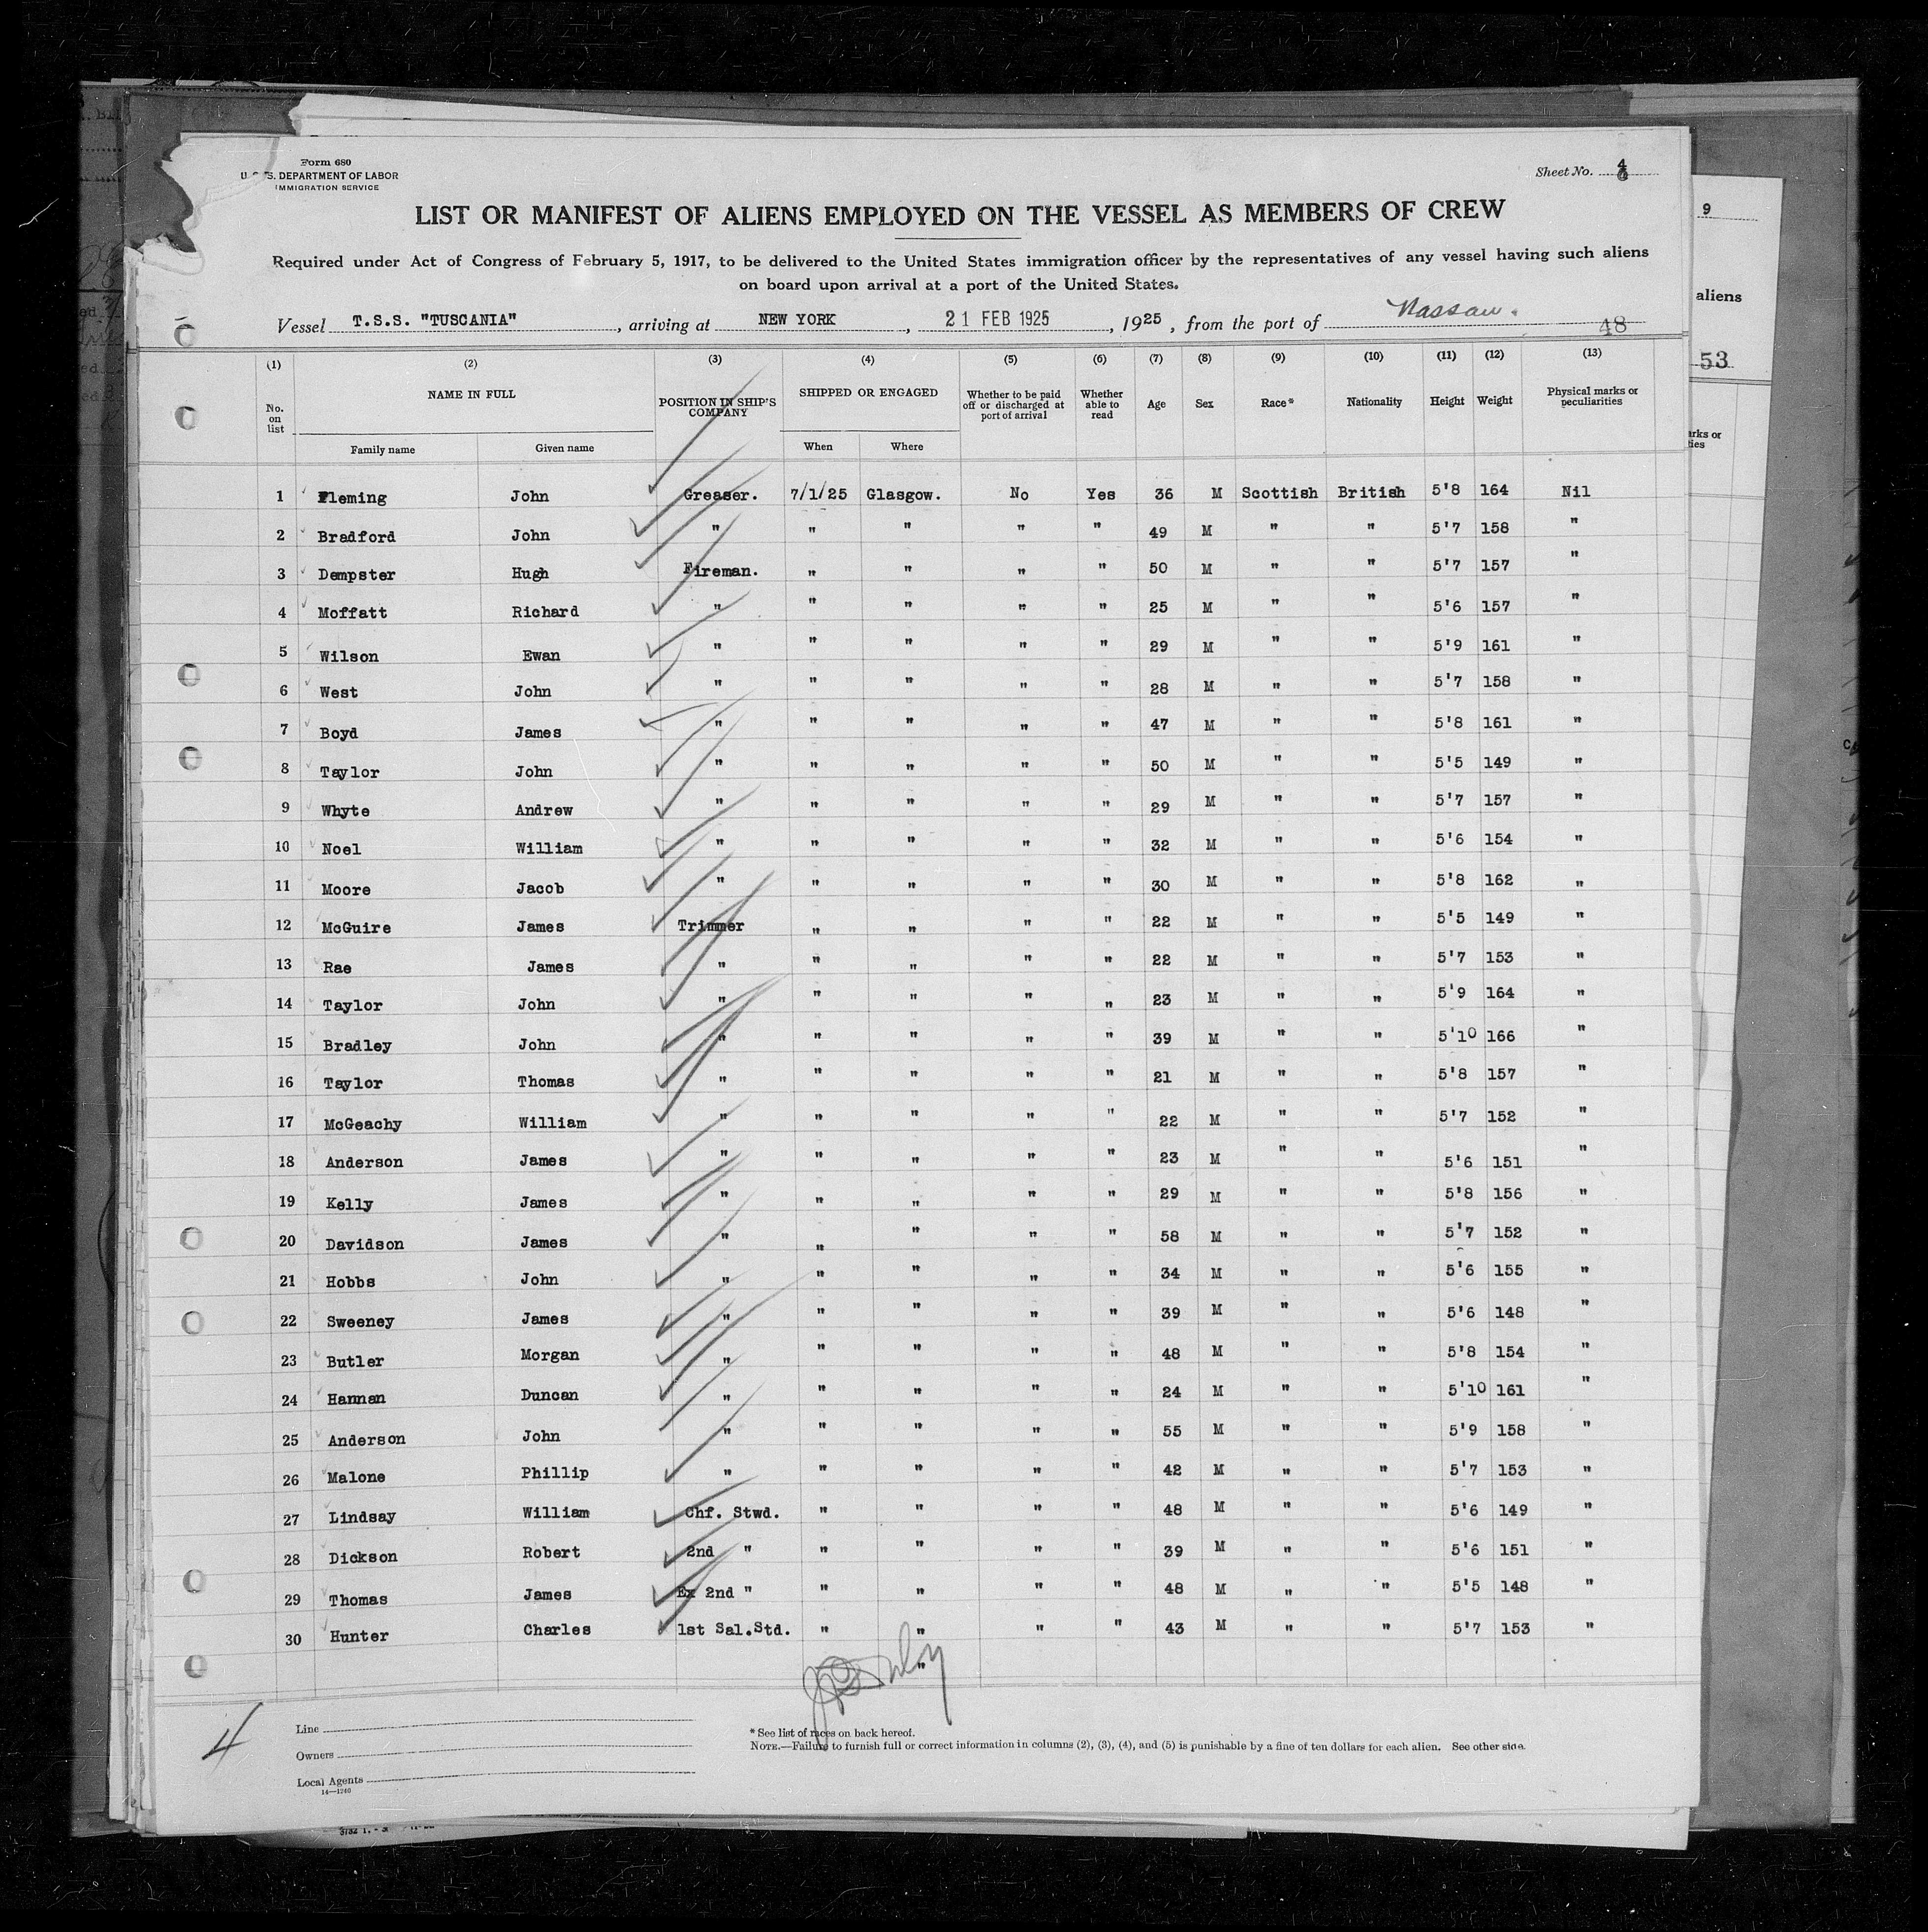 Form 680
U. S. DEPARTMENT OF LABOR
IMMIGRATION SERVICE
Sheet No. 4
LIST OR MANIFEST OF ALIENS EMPLOYED ON THE VESSEL AS MEMBERS OF CREW
Required under Act of Congress of February 5, 1917, to be delivered to the United States immigration officer by the representatives of any vessel having such aliens
on board upon arrival at a port of the United States.
Vessel T.S.S. "TUSCANIA", arriving at NEW YORK, 21 FEB 1925, 1925, from the port of Nassau.
48
(1) (2) (3) (4) (5) (6) (7) (8) (9) (10) (11) (12) (13)
No. on list NAME IN FULL Family name Given name POSITION IN SHIP'S COMPANY SHIPPED OR ENGAGED When Where Whether to be paid off or discharged at port of arrival Whether able to read Age Sex Race* Nationality Height Weight Physical marks or peculiarities
1 Fleming John Greaser. 7/1/25 Glasgow. No Yes 36 M Scottish British 5'8 164 Nil
2 Bradford John " " " " " 49 M " " 5'7 158 "
3 Dempster Hugh Fireman. " " " " 50 M " " 5'7 157 "
4 Moffatt Richard " " " " " 25 M " " 5'6 157 "
5 Wilson Ewan " " " " " 29 M " " 5'9 161 "
6 West John " " " " " 28 M " " 5'7 158 "
7 Boyd James " " " " " 47 M " " 5'8 161 "
8 Taylor John " " " " " 50 M " " 5'5 149 "
9 Whyte Andrew " " " " " 29 M " " 5'7 157 "
10 Noel William " " " " " 32 M " " 5'6 154 "
11 Moore Jacob " " " " " 30 M " " 5'8 162 "
12 McGuire James Trimmer " " " " 22 M " " 5'5 149 "
13 Rae James " " " " " 22 M " " 5'7 153 "
14 Taylor John " " " " " 23 M " " 5'9 164 "
15 Bradley John " " " " " 39 M " " 5'10 166 "
16 Taylor Thomas " " " " " 21 M " " 5'8 157 "
17 McGeachy William " " " " " 22 M " " 5'7 152 "
18 Anderson James " " " " " 23 M " " 5'6 151 "
19 Kelly James " " " " " 29 M " " 5'8 156 "
20 Davidson James " " " " " 58 M " " 5'7 152 "
21 Hobbs John " " " " " 34 M " " 5'6 155 "
22 Sweeney James " " " " " 39 M " " 5'6 148 "
23 Butler Morgan " " " " " 48 M " " 5'8 154 "
24 Hannan Duncan " " " " " 24 M " " 5'10 161 "
25 Anderson John " " " " " 55 M " " 5'9 158 "
26 Malone Phillip " " " " " 42 M " " 5'7 153 "
27 Lindsay William Chf. Stwd. " " " " 48 M " " 5'6 149 "
28 Dickson Robert 2nd " " " " " 39 M " " 5'6 151 "
29 Thomas James Ex 2nd " " " " " 48 M " " 5'5 148 "
30 Hunter Charles 1st Sal.Std. " " " " 43 M " " 5'7 153 "
"
4
Line
Owners
Local Agents
14—1240
* See list of races on back hereof.
NOTE.—Failure to furnish full or correct information in columns (2), (3), (4), and (5) is punishable by a fine of ten dollars for each alien. See other side.
9
aliens
53